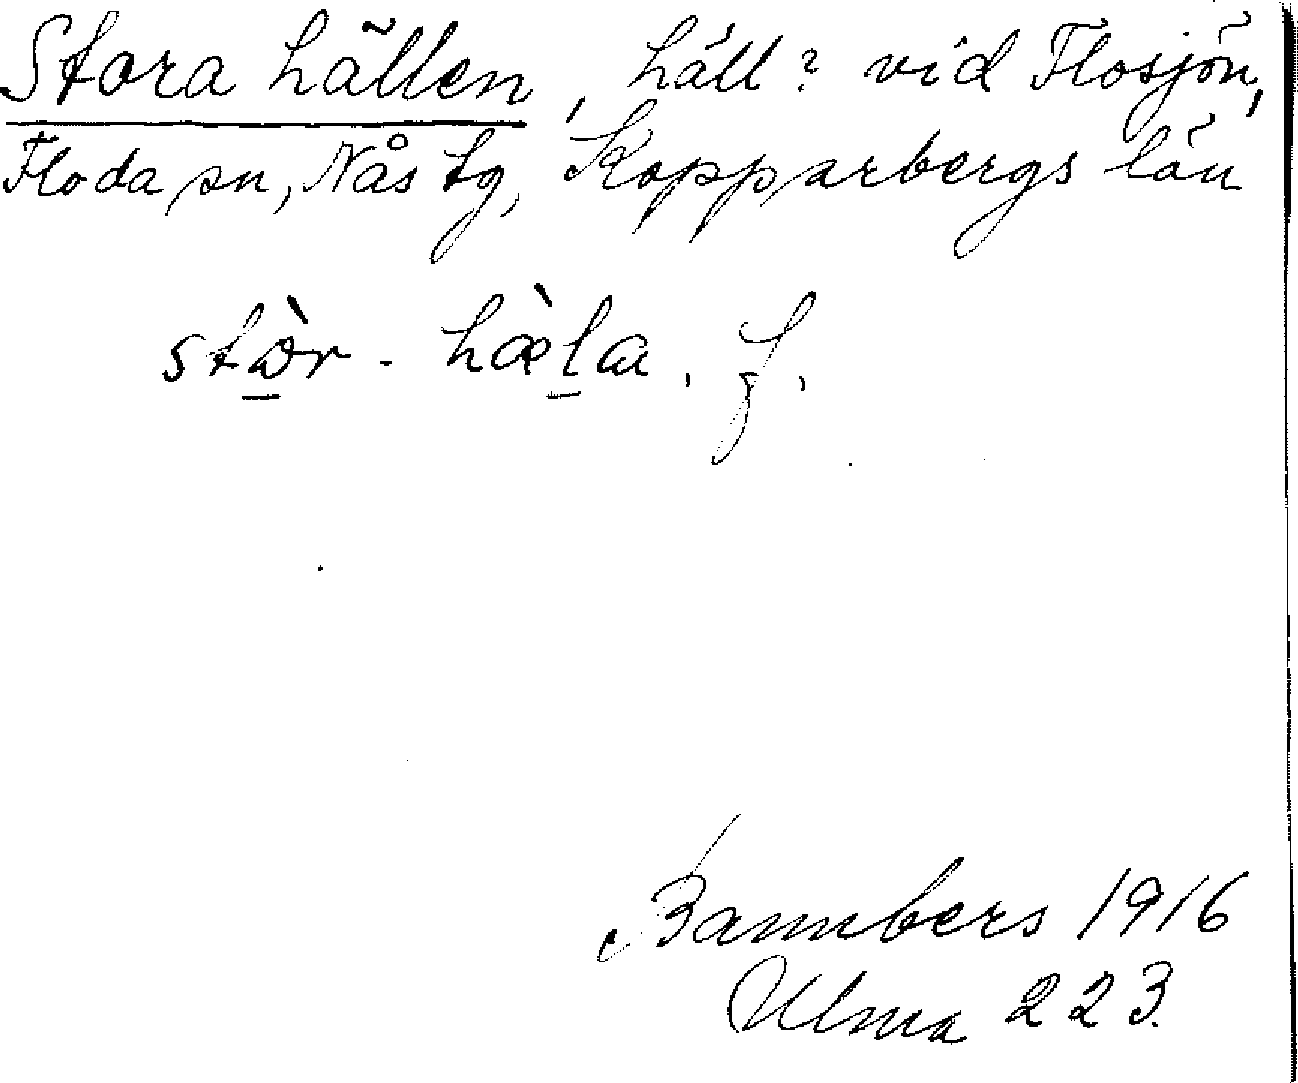 Stora hällen, häll? vid Flosjön,
Floda sn, Nås tg, Kopparbergs län
stὼ̲r-hæ̀l̲a. f.
Bannbers 1916
Ulma 223.